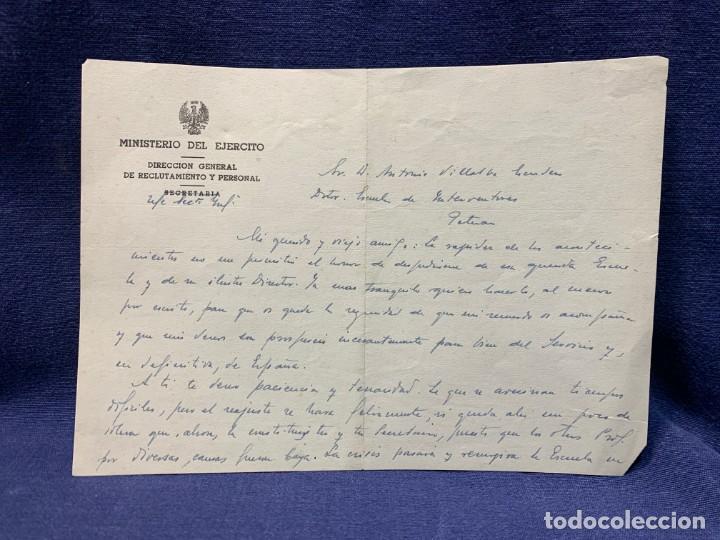 MINISTERIO DEL EJERCITO
DIRECCION GENERAL
DE RECLUTAMIENTO Y PERSONAL
SECRETARIA
Sr. D. Antonio Villalba
Dtor. Escuela de Interventores
Tetuan
Mi querido y viejo amigo: La rapidez de los aconteci-
mientos no me permitió el honor de despedirme de esa querida Escue-
la y de su ilustre Director. Ya mas tranquilo quiero hacerlo, al menos
por escrito, para que os quede la seguridad de que mi recuerdo os acompaña
y que mis deseos son prospereis incesantemente para bien del Servicio y,
en definitiva, de España.
A ti te deseo paciencia y tenacidad. Se que se avecinan tiempos
dificiles, pero el reajuste se hará felizmente, si queda ahi un poco de
que, ahora, la constituyes tu y tu Secretario, puesto que los otros Prof.
por diversas causas fueron baja. La crisis pasará y resurgirá la Escuela en
todocoleccion.net